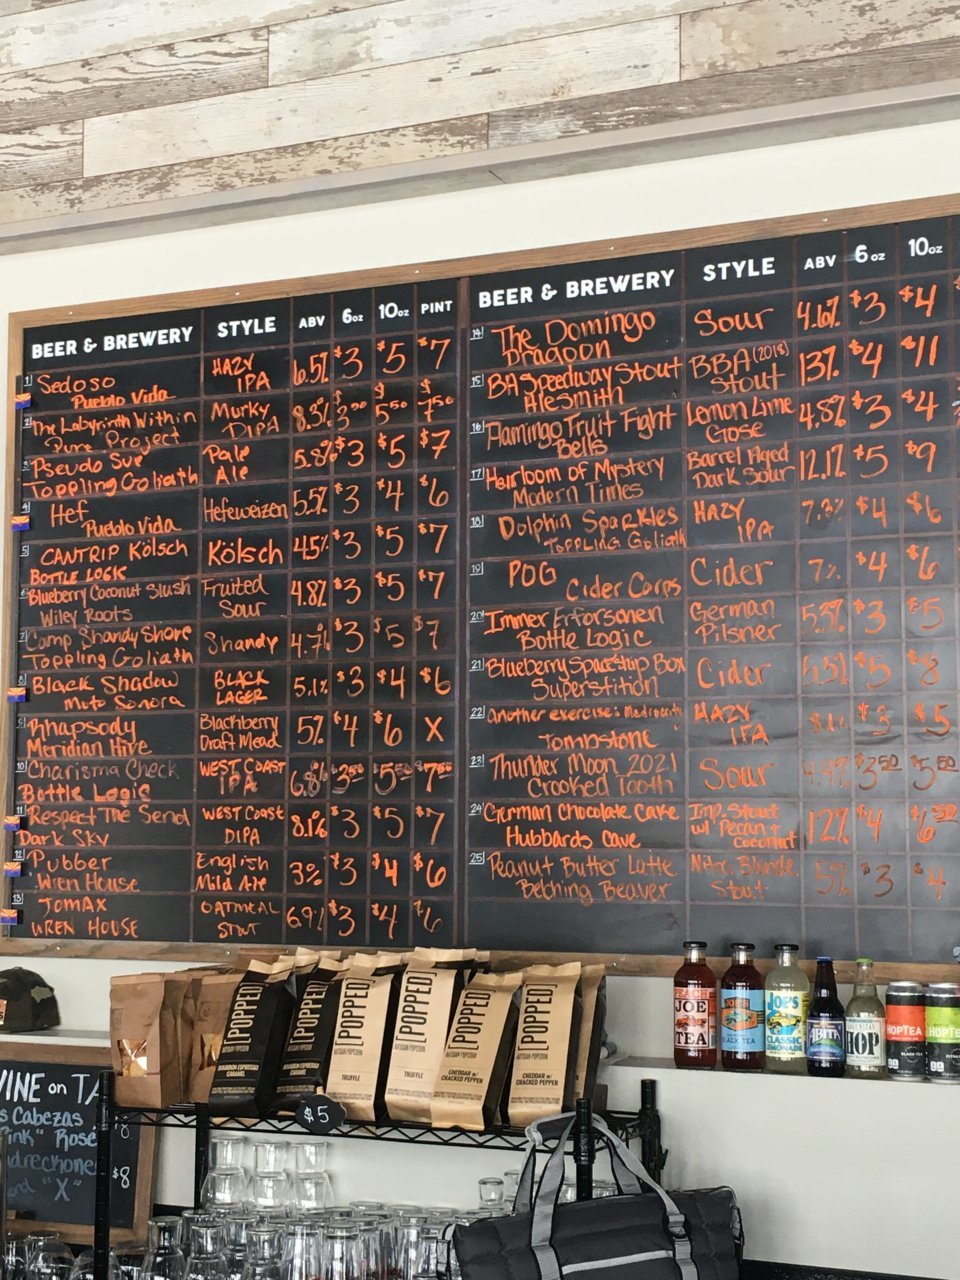 BEER & BREWERY STYLE ABV 6oz 10oz PINT
1 Sedoso HAZY 6.5% $3 $5 $7
Pueblo Vida IPA
2 The Labyrinth Within Murky 8.3% $3.50 $5.50 $7.50
Pure Project DIPA
3 Pseudo Sue Pale 5.8% $3 $5 $7
Toppling Goliath Ale
4 Hef Hefeweizen 5.5% $3 $4 $6
Pueblo Vida
5 CANTRIP Kölsch Kölsch 4.5% $3 $5 $7
BOTTLE LOGIC
6 Blueberry Coconut Slush Fruited 4.8% $3 $5 $7
Wiley Roots Sour
7 Comp Shandy Shore Shandy 4.7% $3 $5 $7
Toppling Goliath
8 Black Shadow BLACK 5.1% $3 $4 $6
Moto Sonora LAGER
9 Rhapsody Blackberry 5% $4 $6 X
Meridian Hive Draft Mead
10 Charisma Check WEST COAST 6.8% $3.50 $5.50 $7.50
Bottle Logic IPA
11 Respect The Send WEST COAST 8.1% $3 $5 $7
Dark Sky DIPA
12 Pubber English 3% $3 $4 $6
Wren House Mild Ale
13 JOMAX OATMEAL 6.9% $3 $4 $6
WREN HOUSE STOUT
BEER & BREWERY STYLE ABV 6oz 10oz
14 The Domingo Sour 4.6% $3 $4
Dragoon
15 BA Speedway Stout BBA (2018) 13% $4 $11
AleSmith Stout
16 Flamingo Fruit Fight Lemon Lime 4.8% $3 $4
Bells Gose
17 Heirloom of Mystery Barrel Aged 12.1% $5 $9
Modern Times Dark Sour
18 Dolphin Sparkles HAZY 7.3% $4 $6
TOPPLING Goliath IPA
19 POG Cider 7% $4 $6
Cider Corps
20 Immer Erforsanen German 5.3% $3 $5
Bottle Logic Pilsner
21 Blueberry Spaceship Box Cider 5.5% $5 $8
Superstition
22 Another exercise HAZY $3 $5
Tombstone IPA
23 Thunder Moon 2021 Sour 4.4% $3.50 $5.50
Crooked Tooth
24 German Chocolate Cake Imp. Stout 12% $4 $6.50
Hubbards Cave w/ Pecan + Coconut
25 Peanut Butter Latte Nitro Blonde 5% $3 $4
Belching Beaver Stout
[POPPED]
ARTISAN POPCORN
BOURBON ESPRESSO
CARAMEL
[POPPED]
[POPPED]
ARTISAN POPCORN
TRUFFLE
[POPPED]
ARTISAN POPCORN
TRUFFLE
[POPPED]
ARTISAN POPCORN
CHEDDAR +
CRACKED PEPPER
[POPPED]
ARTISAN POPCORN
TRUFFLE
$5
PEACH
JOE
TEA
JOE'S
BLACK TEA
JOE'S
CLASSIC
LEMONADE
ABITA
HOP
HOPTEA
HOPTEA
WINE on TA
s Cabezas
Pink" Rosé $8
dreckone
"X" $8